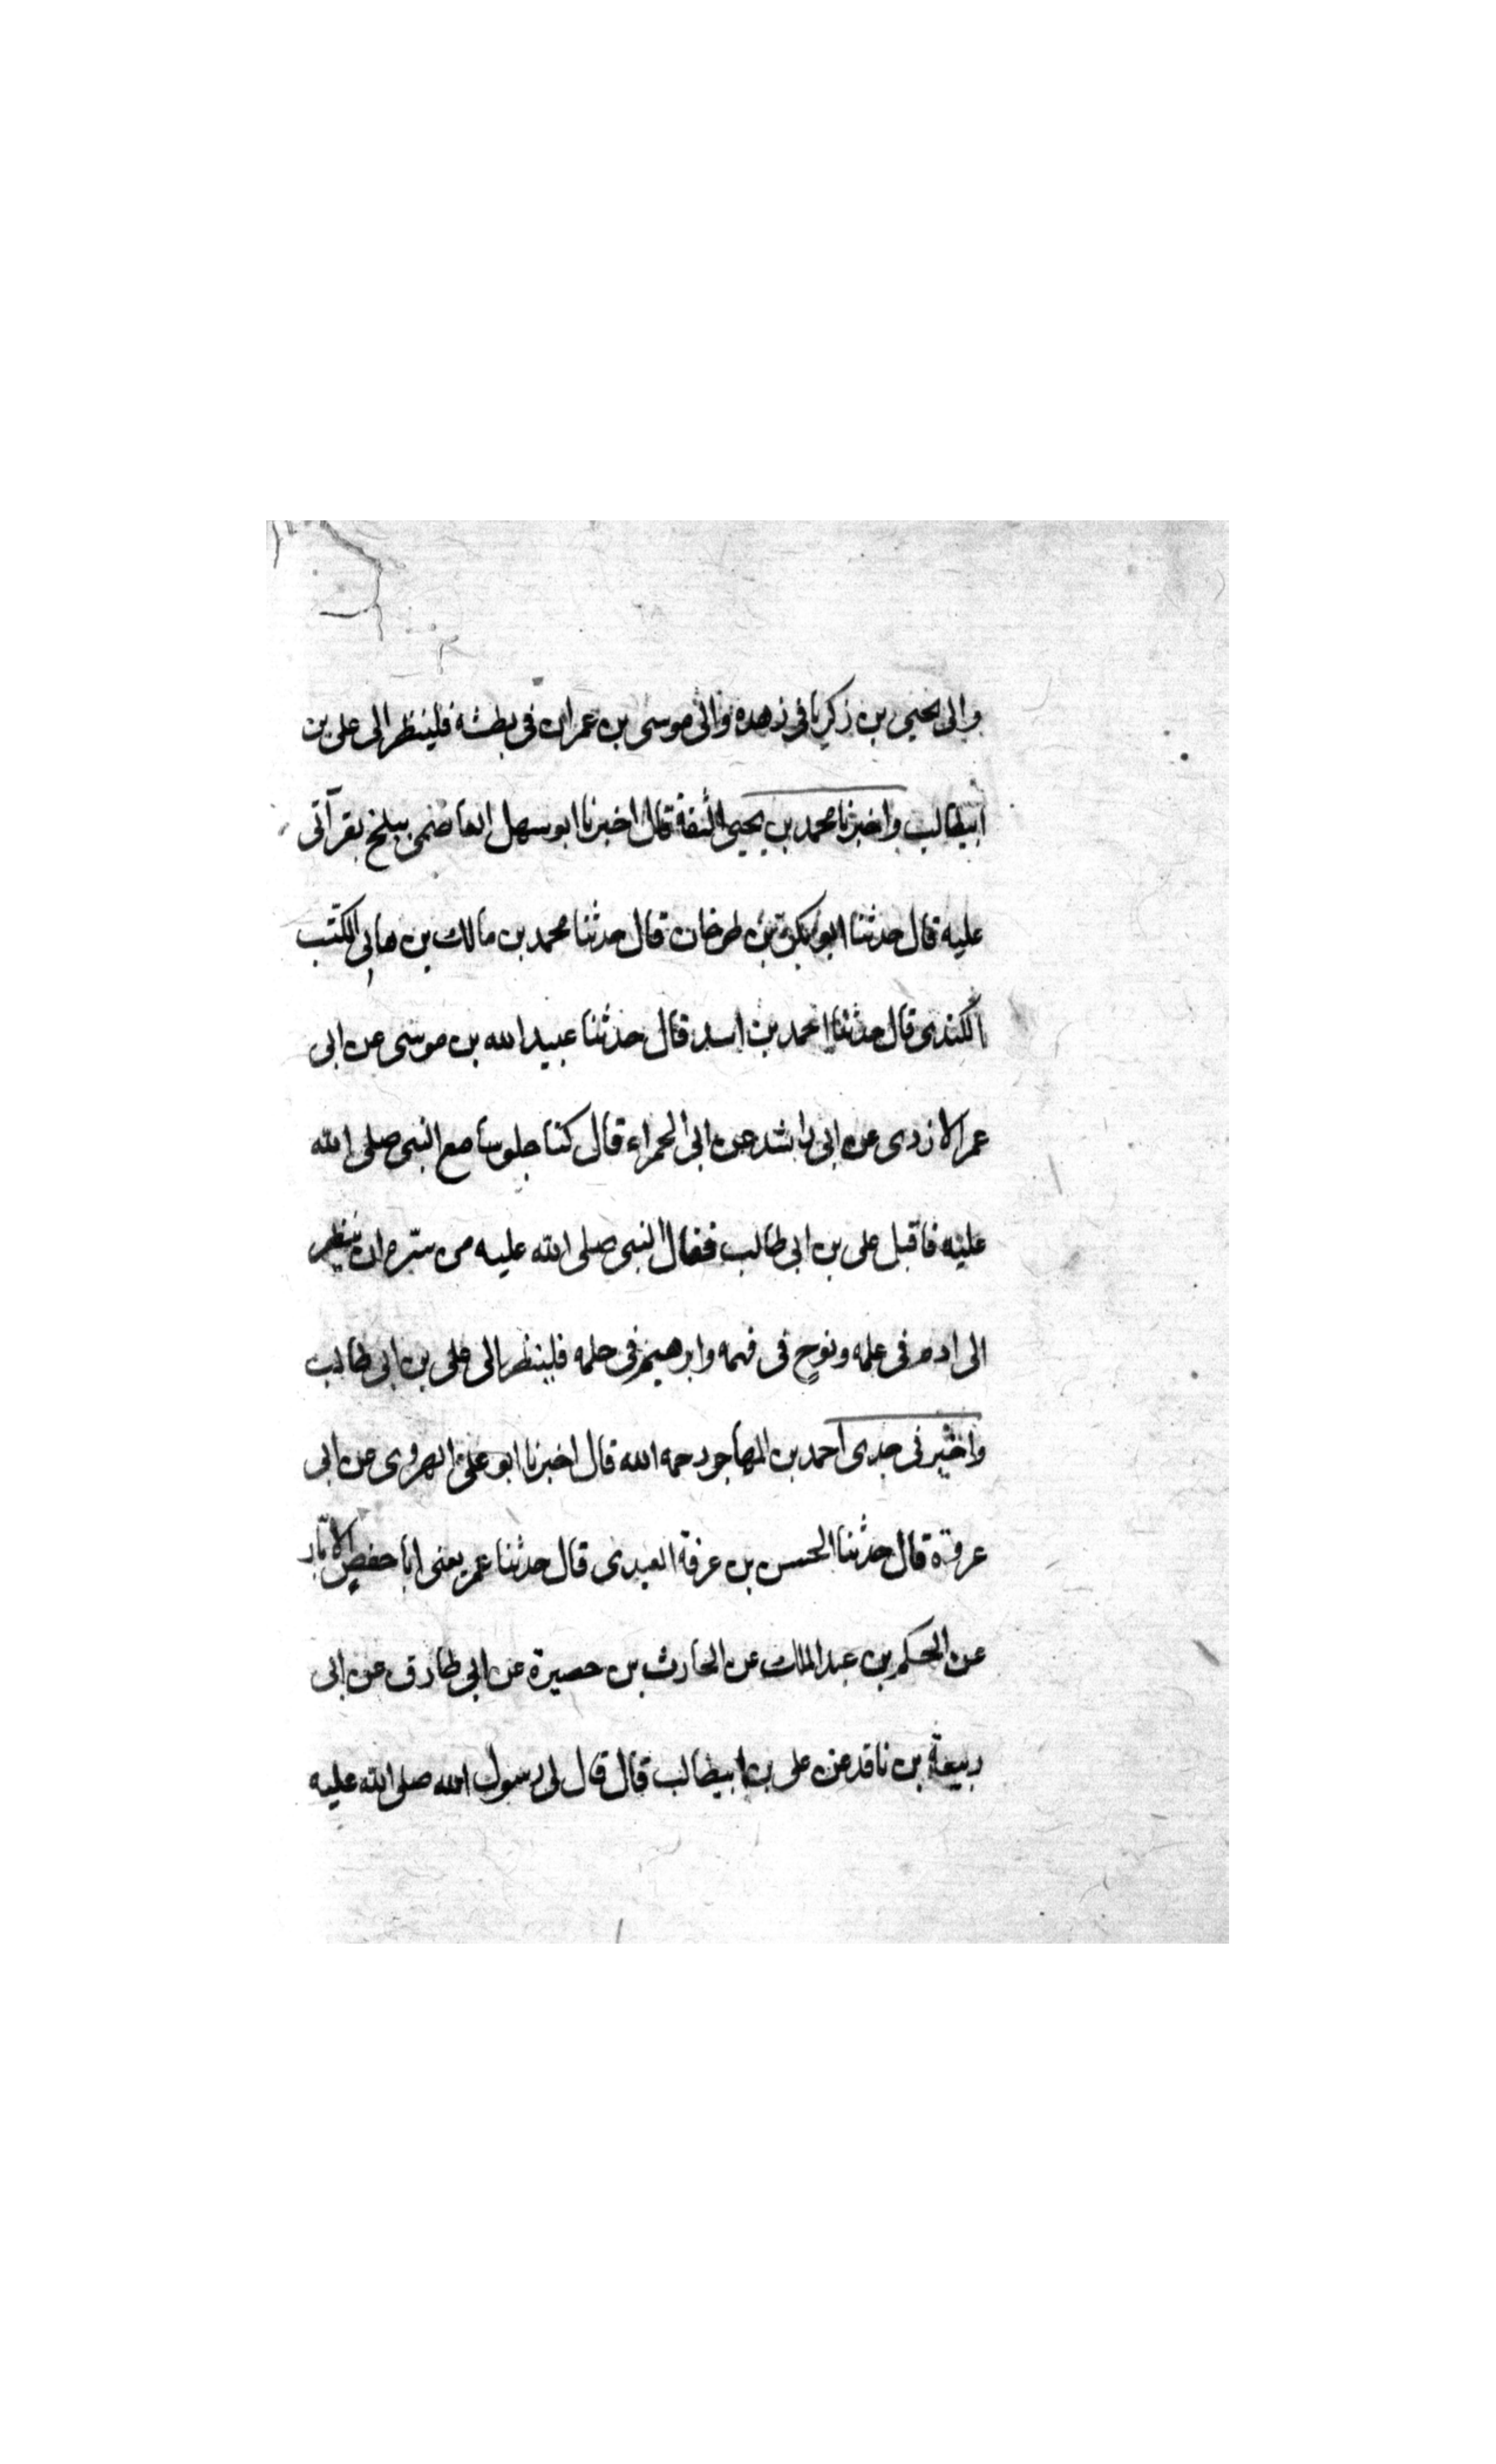 والى يحيى بن زكريا فى زهده والى موسى بن عمران فى بطشه فلينظر الى على بن
ابيطالب واخبرنا محمد بن يحيى الثقة قال اخبرنا ابو سهل القاضى ببلخ بقرآتى
عليه قال حدثنا ابو بكر بن طرخان قال حدثنا محمد بن مالك بن هانى المكتب
الكندى قال حدثنا احمد بن اسد قال حدثنا عبيد الله بن موسى عن ابى
عمر الازدى عن ابى راشد عن ابى الحمراء قال كنا جلوسا مع النبى صلى الله
عليه فاقبل على بن ابى طالب فقال النبى صلى الله عليه من سره ان ينظر
الى ادم فى علمه ونوح فى فهمه وابرهيم فى حلمه فلينظر الى على بن ابى طالب
واخبرنى جدى احمد بن المهاجر رحمه الله قال اخبرنا ابو على الهروى عن ابى
عرفة قال حدثنا الحسن بن عرفة العبدى قال حدثنا عمر يعنى ابا حفص الابار
عن الحكم بن عبد الملك عن الحارث بن حصيرة عن ابى طارق عن ابى
ربيعة بن ناقد عن على بن ابيطالب قال قال لى رسول الله صلى الله عليه